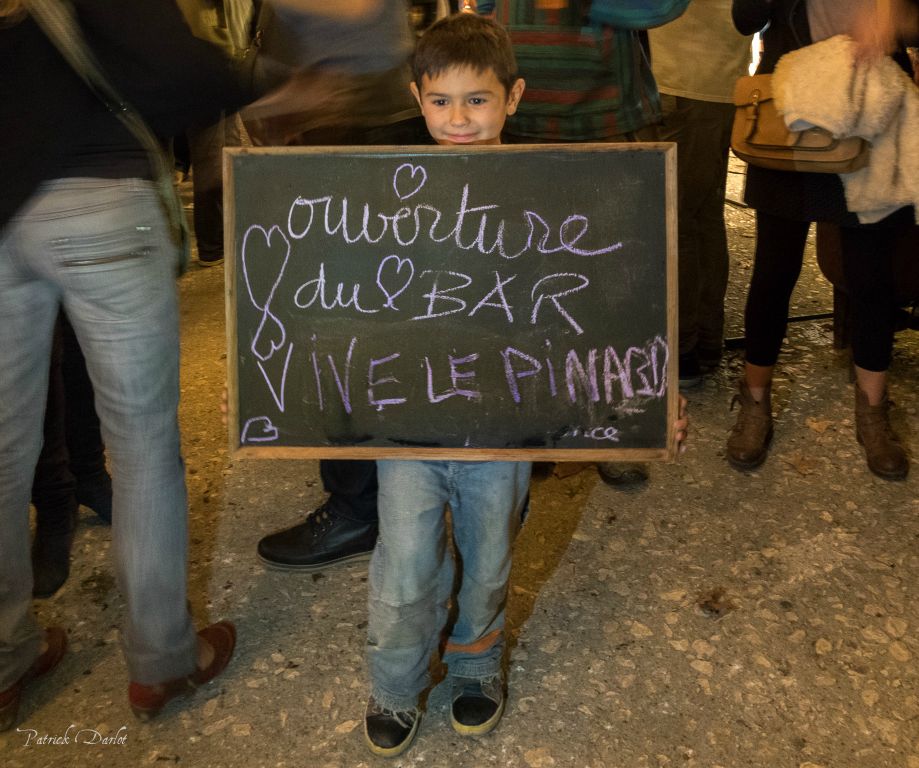 ouverture
du BAR
VIVE LE PINARD
Patrick Darlot